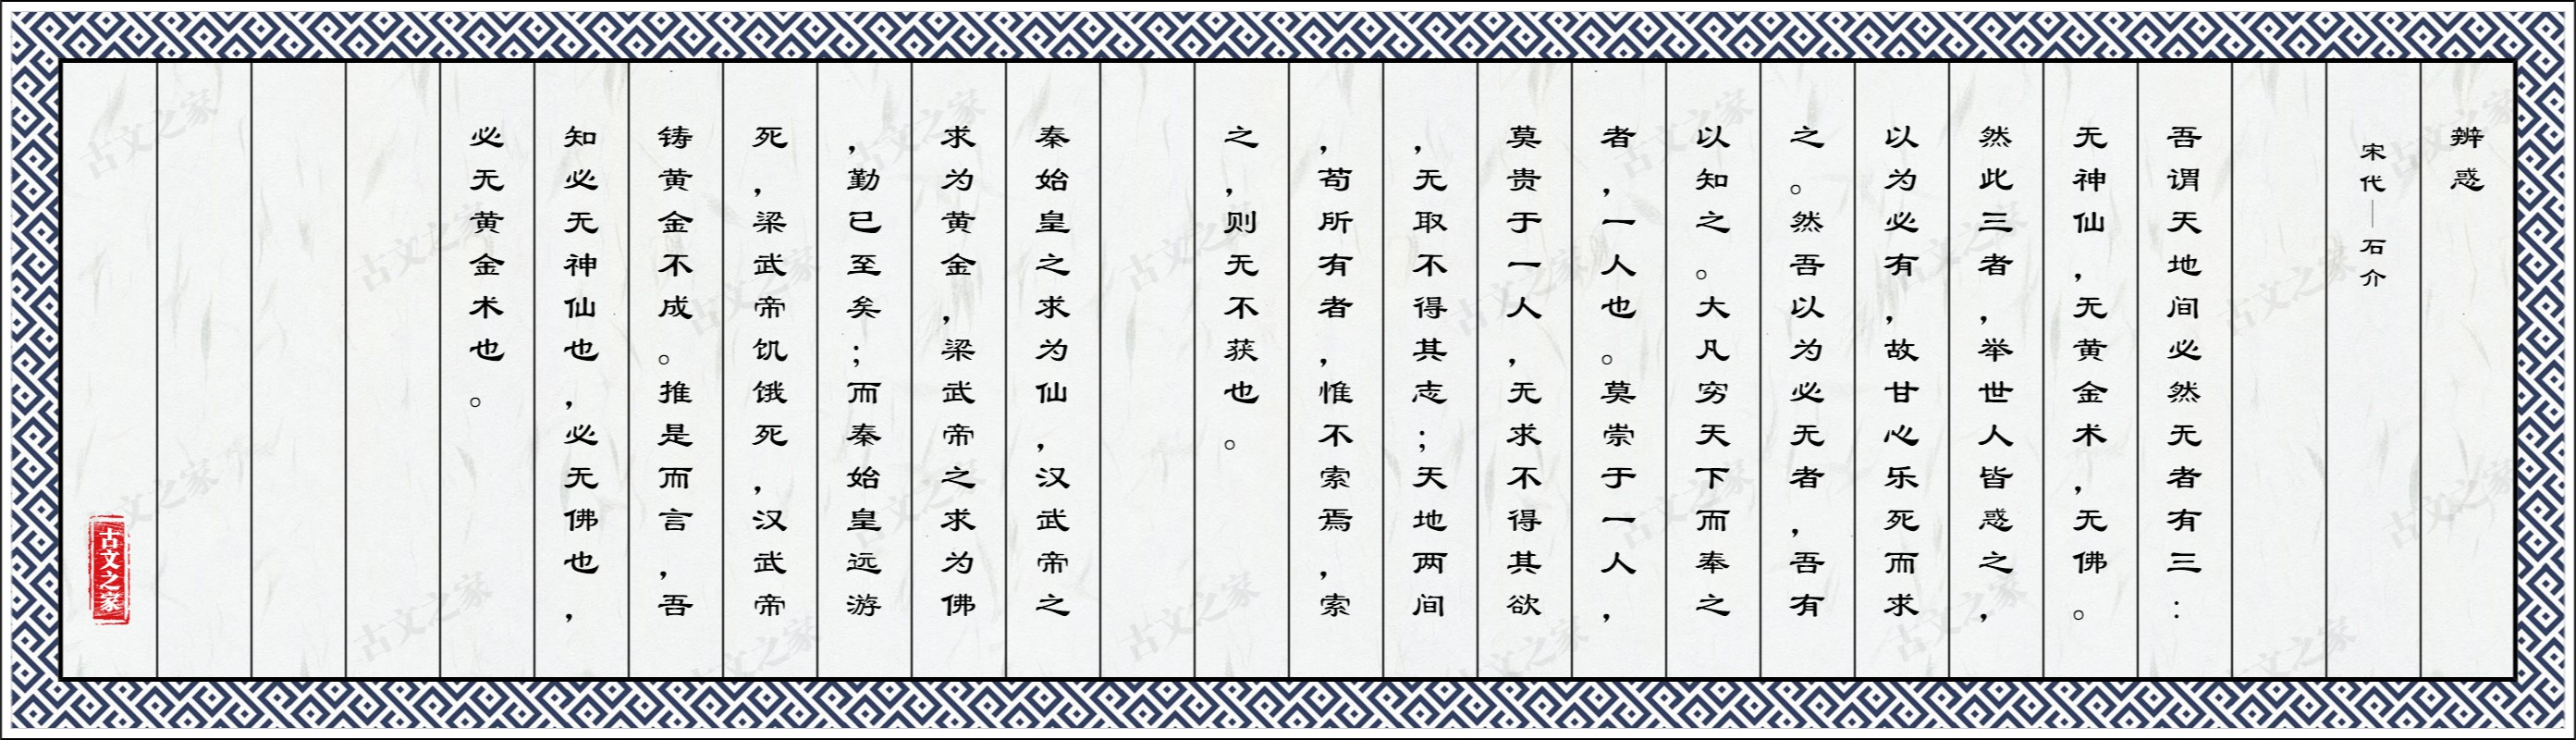 辨惑
宋代｜石介
吾谓天地间必然无者有三：
无神仙，无黄金术，无佛。
然此三者，举世人皆惑之，
以为必有，故甘心乐死而求
之。然吾以为必无者，吾有
以知之。大凡穷天下而奉之
者，一人也。莫崇于一人，
莫贵于一人，无求不得其欲
，无取不得其志；天地两间
，苟所有者，惟不索焉，索
之，则无不获也。
秦始皇之求为仙，汉武帝之
求为黄金，梁武帝之求为佛
，勤已至矣；而秦始皇远游
死，梁武帝饥饿死，汉武帝
铸黄金不成。推是而言，吾
知必无神仙也，必无佛也，
必无黄金术也。
古文之家